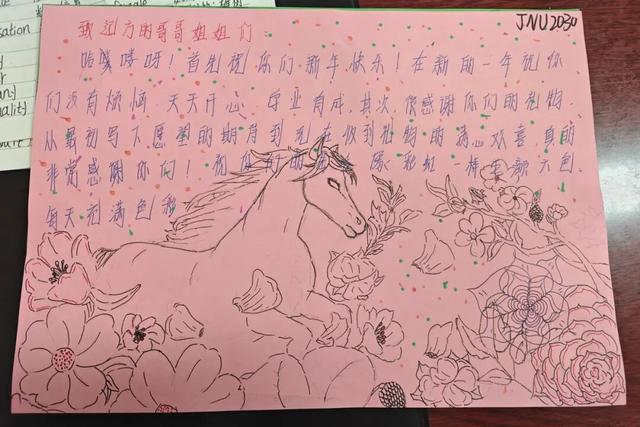 JNU2030
致远方的哥哥姐姐们:
哈喽呀!首先祝你们新年快乐!在新的一年祝你
们没有烦恼,天天开心,学业有成,其次,很感谢你们的礼物,
从最初写下愿望的期待到现在收到礼物的满心欢喜,真的
非常感谢你们!祝你们的 像彩虹 棒棒 颜六色,
每天充满色彩
sation
ality